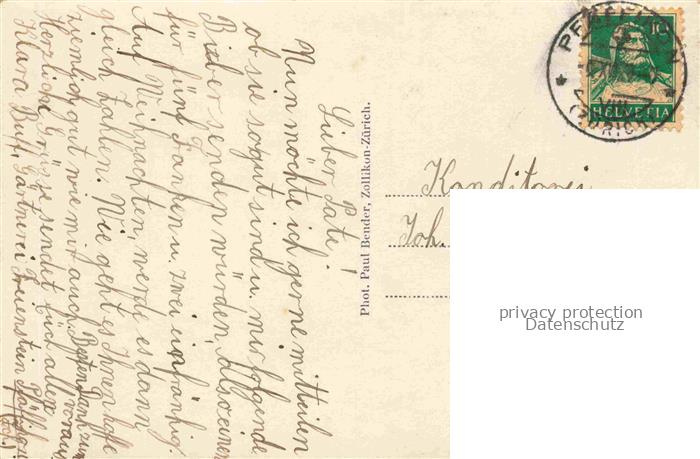 Lieber Pate!
Nun möchte ich gerne mitteilen
ob sie so gut sind u. mir folgende
Bieber senden würden, Also einen
für fünf Franken u. zwei einfränkig.
Auf Weihnachten, werde es dann
gleich zahlen. Wie geht es Ihnen hoffe
ziemlich gut wie mir auch. Besten Dank zum
voraus
Herzliche Grüsse sendet Euch allen
Klara Gärtnerei
Phot. Paul Bender, Zollikon-Zürich.
10
HELVETIA
(ZÜRICH)
Konditorei
Joh.
privacy protection
Datenschutz